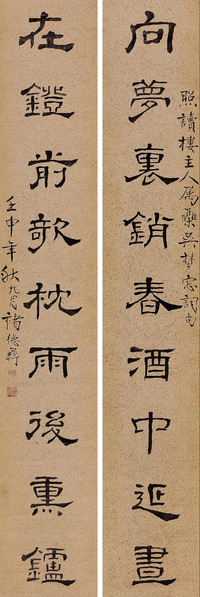 向夢裏銷春酒中延晝
照讀樓主人屬吳梦窗詞句
在鐙前欹枕雨後熏鑪
壬申年秋九月褚德彝